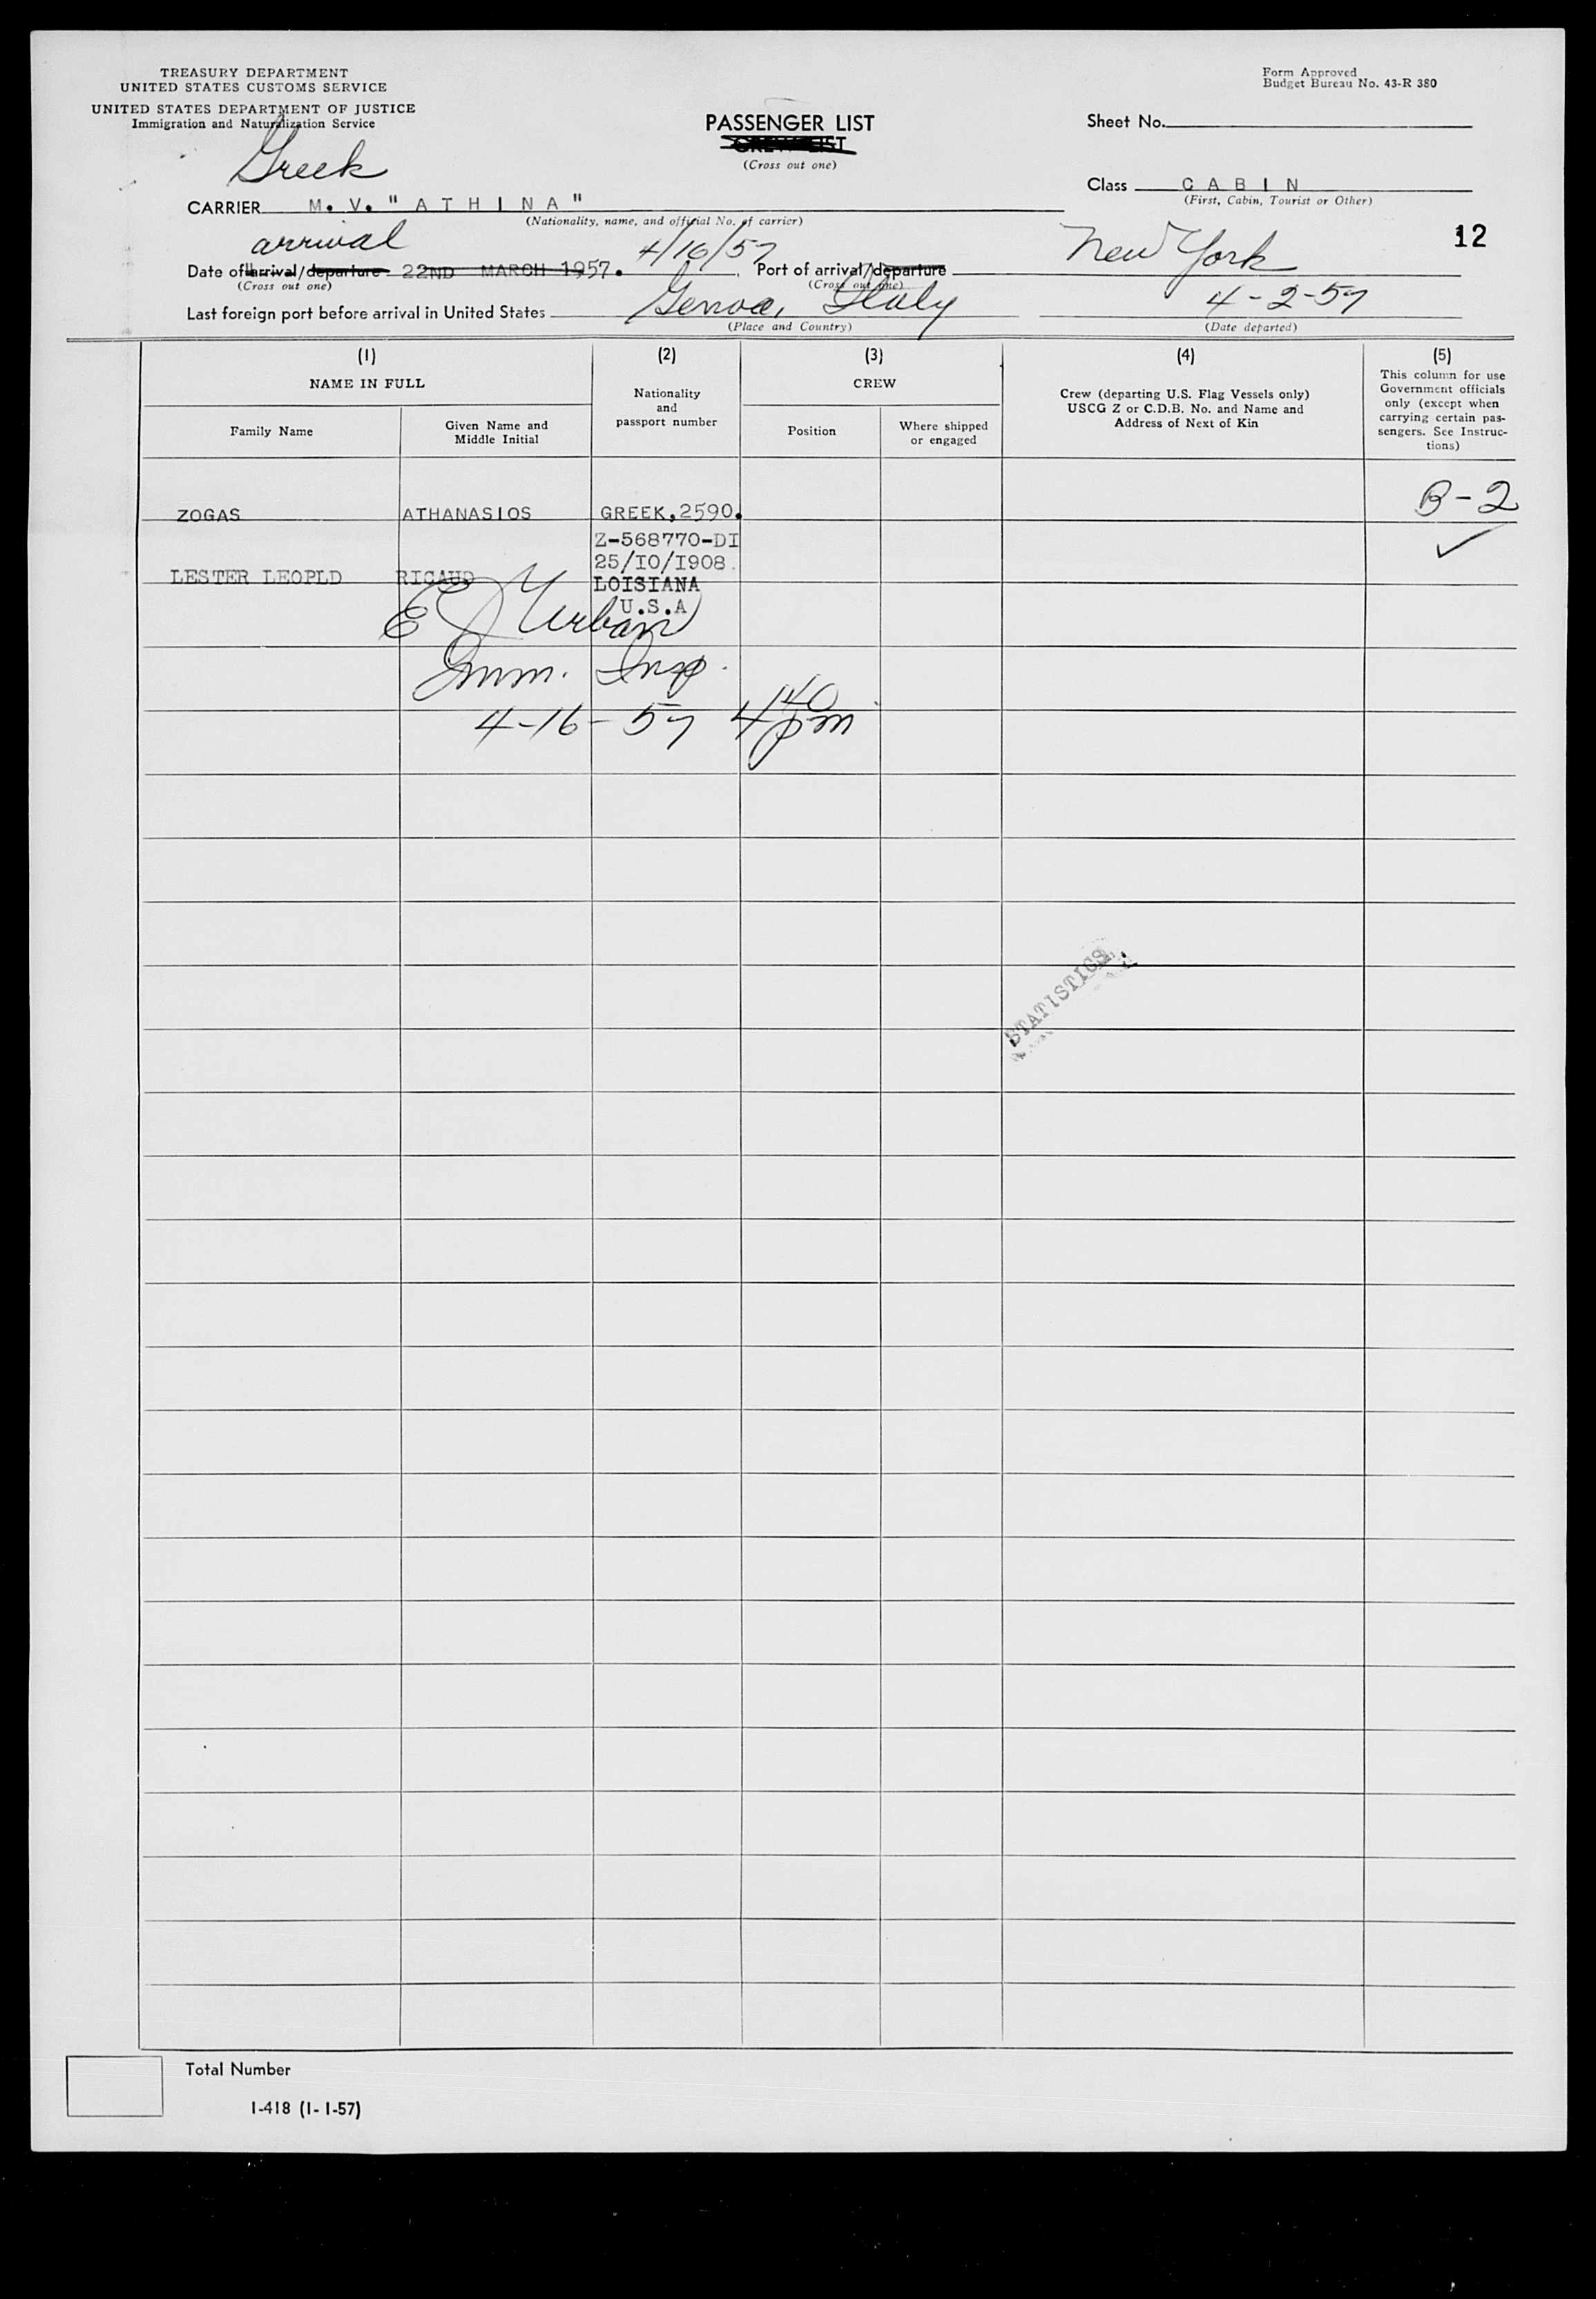 TREASURY DEPARTMENT
UNITED STATES CUSTOMS SERVICE
UNITED STATES DEPARTMENT OF JUSTICE
Immigration and Naturalization Service
Form Approved
Budget Bureau No. 43-R 380
PASSENGER LIST
CREW LIST
(Cross out one)
Sheet No.
Greek
Class C A B I N
(First, Cabin, Tourist or Other)
CARRIER M. V. " A T H I N A "
(Nationality, name, and official No. of carrier)
12
arrival
Date of arrival/departure 22ND MARCH 1957. 4/16/57
(Cross out one)
Port of arrival/departure New York
(Cross out one)
Last foreign port before arrival in United States Genoa, Italy
(Place and Country)
4-2-57
(Date departed)
(1)
NAME IN FULL
Family Name
Given Name and
Middle Initial
(2)
Nationality
and
passport number
(3)
CREW
Position
Where shipped
or engaged
(4)
Crew (departing U.S. Flag Vessels only)
USCG Z or C.D.B. No. and Name and
Address of Next of Kin
(5)
This column for use
Government officials
only (except when
carrying certain pas-
sengers. See Instruc-
tions)
ZOGAS ATHANASIOS GREEK,2590. B-2
Z-568770-DI
25/IO/I908.
LESTER LEOPLD RICAUD LOISIANA
U.S.A
E J Urban
Imm. Insp.
4-16-57 4 40 pm
STATISTICS
Total Number
I-418 (1-1-57)